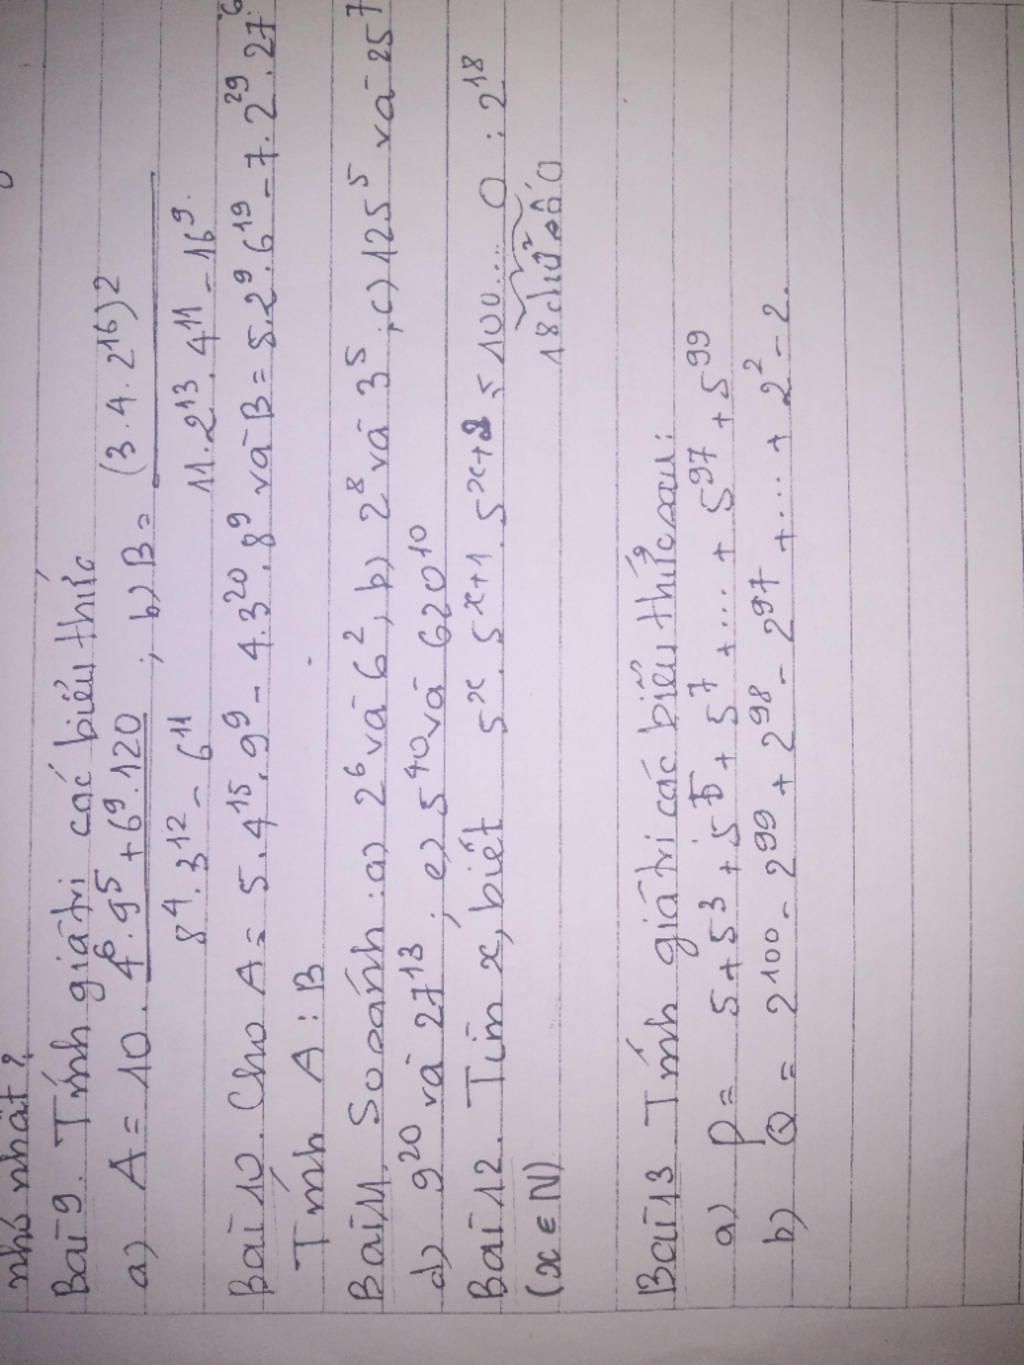 nhỏ nhất?
Bài 9. Tính giá trị các biểu thức
a) A = 10 . (4⁶.9⁵ + 6⁹.120)/(8⁴.3¹² - 6¹¹) ; b) B = (3.4.2¹⁶)²/(11.2¹³.4¹¹ - 16⁹.)
Bài 10. Cho A = 5.4¹⁵.9⁹ - 4.3²⁰.8⁹ và B = 5.2⁹.6¹⁹ - 7.2²⁹.27⁶
Tính A : B
Bài 11. So sánh : a) 2⁶ và 6², b) 2⁸ và 3⁵ ; c) 125⁵ và 25⁷
d) 9²⁰ và 27¹³ ; e) 5⁴⁰ và 620¹⁰
Bài 12. Tìm x, biết 5ˣ . 5ˣ⁺¹ . 5ˣ⁺² ≤ 100...0 : 2¹⁸
(x ∈ N) 18 chữ số 0
Bài 13 Tính giá trị các biểu thức sau:
a) P = 5 + 5³ + 5⁵ + 5⁷ + ... + 5⁹⁷ + 5⁹⁹
b) Q = 2¹⁰⁰ - 2⁹⁹ + 2⁹⁸ - 2⁹⁷ + ... + 2² - 2.